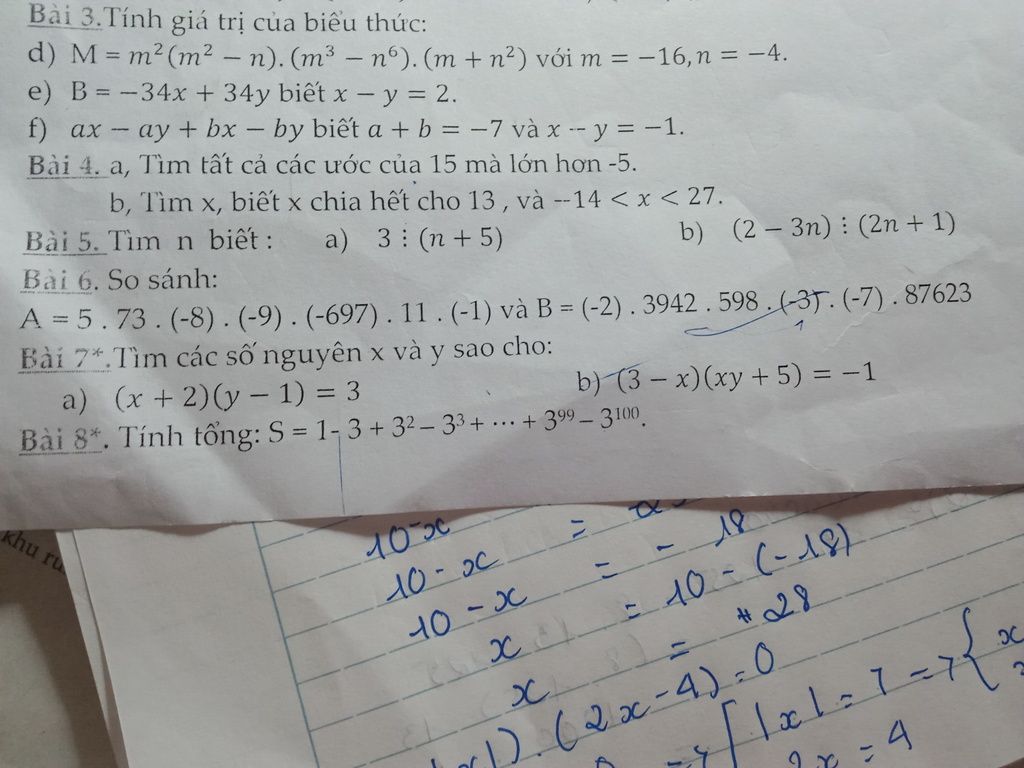 Bài 3.Tính giá trị của biểu thức:
d) M = m²(m² − n). (m³ − n⁶). (m + n²) với m = −16, n = −4.
e) B = −34x + 34y biết x − y = 2.
f) ax − ay + bx − by biết a + b = −7 và x -- y = −1.
Bài 4. a, Tìm tất cả các ước của 15 mà lớn hơn -5.
b, Tìm x, biết x chia hết cho 13 , và --14 < x < 27.
Bài 5. Tìm n biết : a) 3 ⋮ (n + 5) b) (2 − 3n) ⋮ (2n + 1)
Bài 6. So sánh:
A = 5 . 73 . (-8) . (-9) . (-697) . 11 . (-1) và B = (-2) . 3942 . 598 . (-3) . (-7) . 87623
Bài 7*.Tìm các số nguyên x và y sao cho:
a) (x + 2)(y − 1) = 3 b) (3 − x)(xy + 5) = −1
Bài 8*. Tính tổng: S = 1- 3 + 3² − 3³ + ⋯ + 3⁹⁹ − 3¹⁰⁰.
khu
10-x =
10 - x = - 18
10 - x = 10 - (-18)
x = 28
x
). (2x-4) = 0
|x| = 7 =7 { x
2x = 4